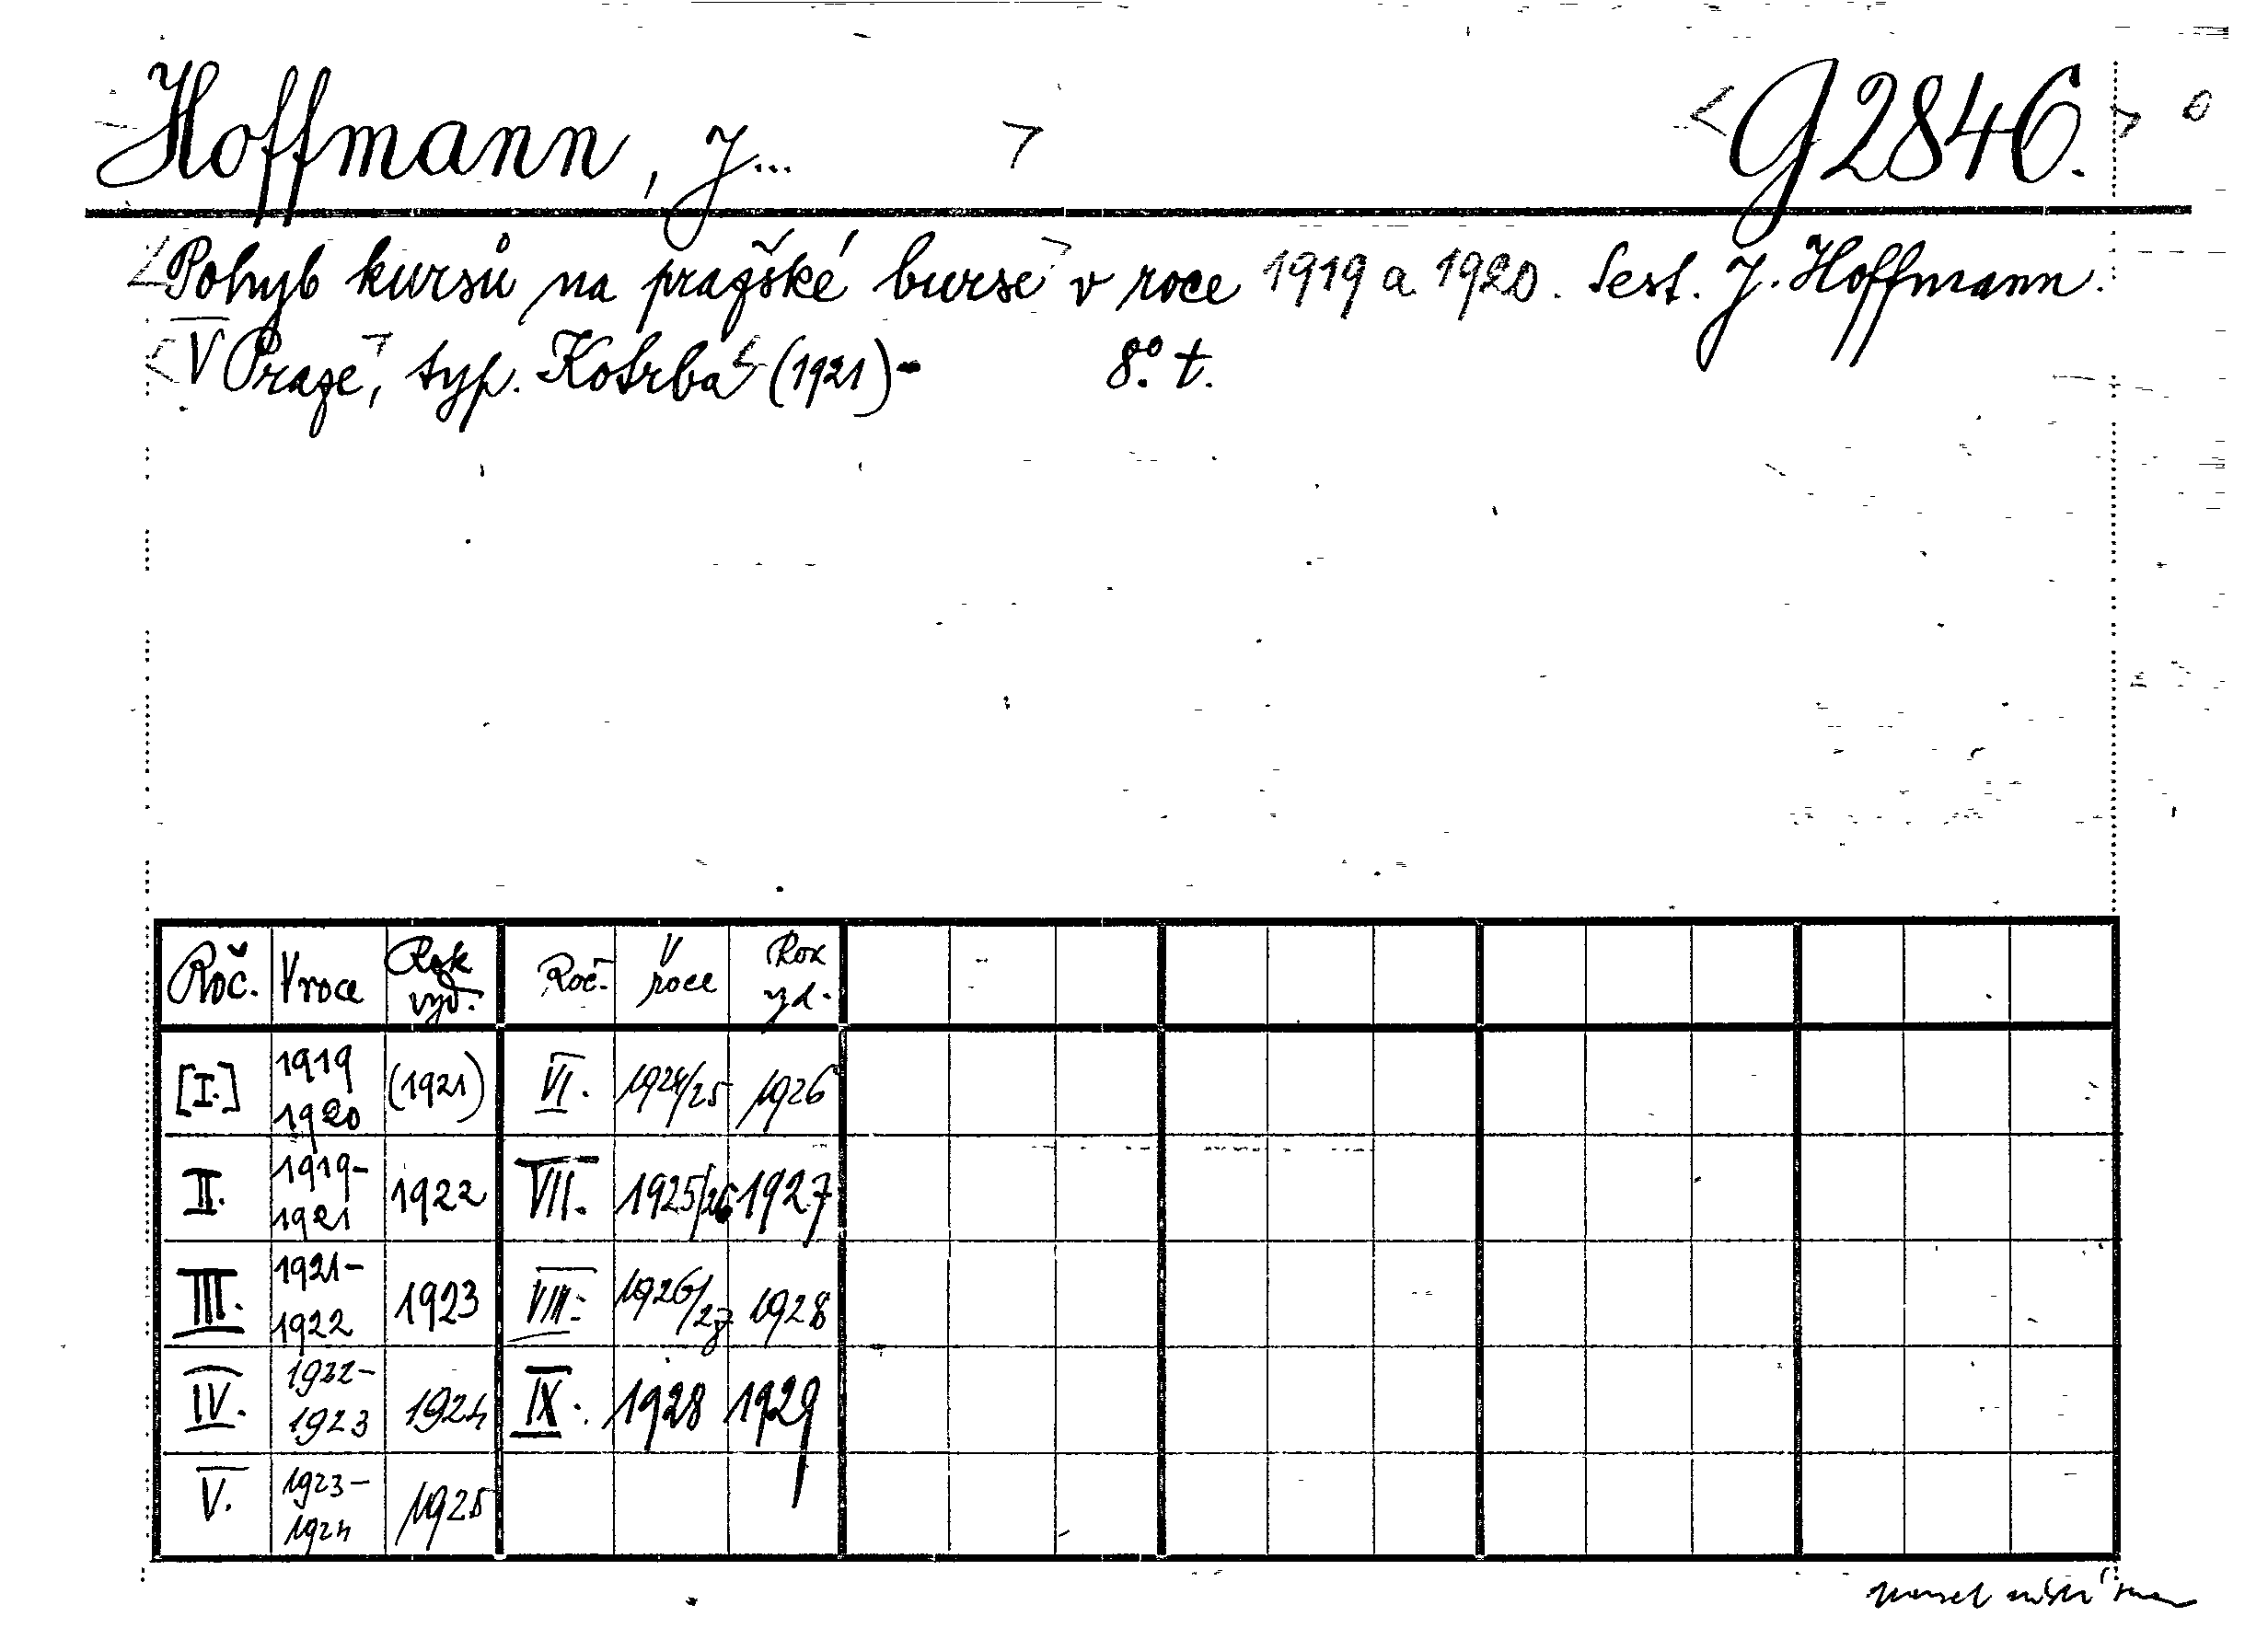 Hoffmann, J... G 2846.
Pohyb kursů na pražské burse v roce 1919 a 1920. Sest. J. Hoffmann.
V Praze, typ. Kotrba (1921)- 8° t.
Roč. V roce Rok vyd. Roč. V roce Rok vyd.
[I.] 1919 1920 (1921) VI. 1924/25 1926
II. 1919-1921 1922 VII. 1925/26 1927
III. 1921-1922 1923 VIII. 1926/27 1928
IV. 1922-1923 1924 IX. 1928 1929
V. 1923-1924 1925